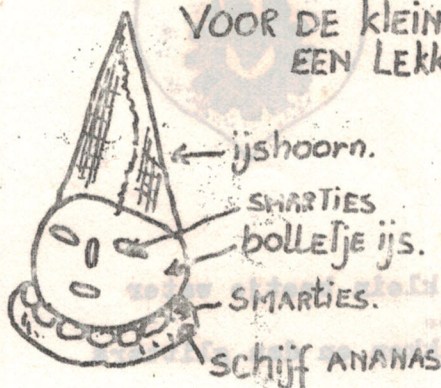 VOOR DE klein
EEN LEKK
ijshoorn.
SMARTIES
bolletje ijs.
SMARTIES.
schijf ANANAS
klein water